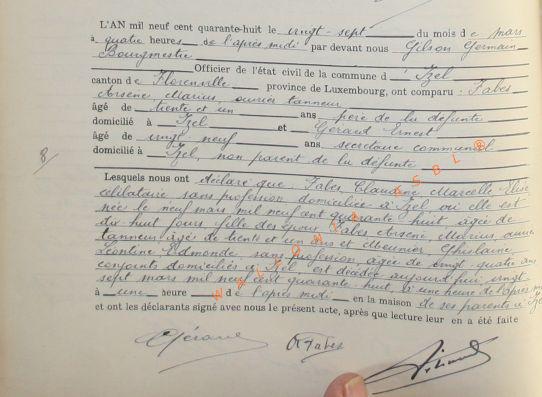 L'AN mil neuf cent quarante-huit le vingt-sept du mois de mars
à quatre heures de l'après midi par devant nous Gilson Germain
Bourgmestre
Officier de l'état civil de la commune d'Izel
canton de Florenville province de Luxembourg, ont comparu : Fabes
Arsène Marius, ouvrier tanneur
âgé de trente et un ans père de la défunte
domicilié à Izel et Gérard Ernest
âgé de vingt neuf ans secrétaire communal
domicilié à Izel, non parent de la défunte
8
Lesquels nous ont déclaré que Fabes Claudine Marcelle Elise
célibataire sans profession domiciliée à Izel où elle est
née le neuf mars mil neuf cent quarante huit, âgée de
dix huit jours fille des époux Fabes Arsène, Marius, ouvrier
tanneur âgé de trente et un ans et Meunier, Ghislaine
Léontine Edmonde, sans profession, agée de vingt-quatre ans
conjoints domiciliés à Izel, est décédée aujourd'hui vingt
sept mars mil neuf cent quarante-huit, à une heure de l'après midi
à une heure de l'après midi en la maison de ses parents à Izel
et ont les déclarants signé avec nous le présent acte, après que lecture leur en a été faite
EGérard AFabes